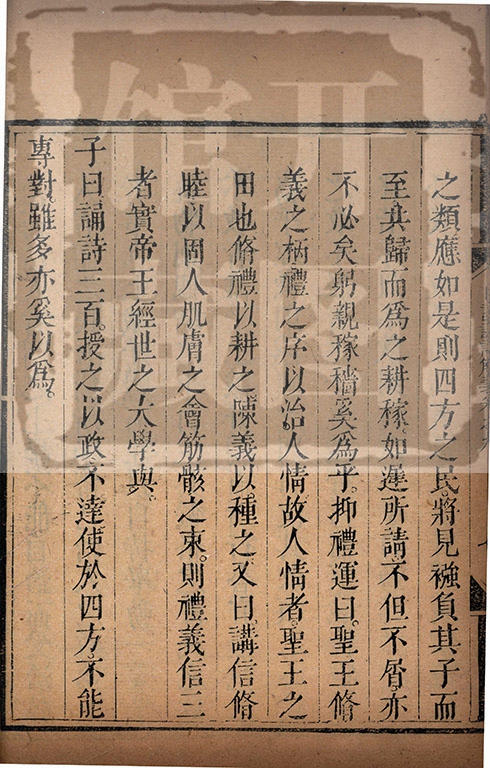 之類應如是則四方之民將見襁負其子而
至其歸而爲之耕稼如遲所請不但不屑亦
不必矣躬親稼穡奚爲乎抑禮運曰聖王脩
義之柄禮之序以治人情故人情者聖王之
田也脩禮以耕之陳義以種之又曰講信脩
睦以固人肌膚之會筋骸之束則禮義信三
者實帝王經世之大學與
子曰誦詩三百授之以政不達使於四方不能
專對雖多亦奚以爲